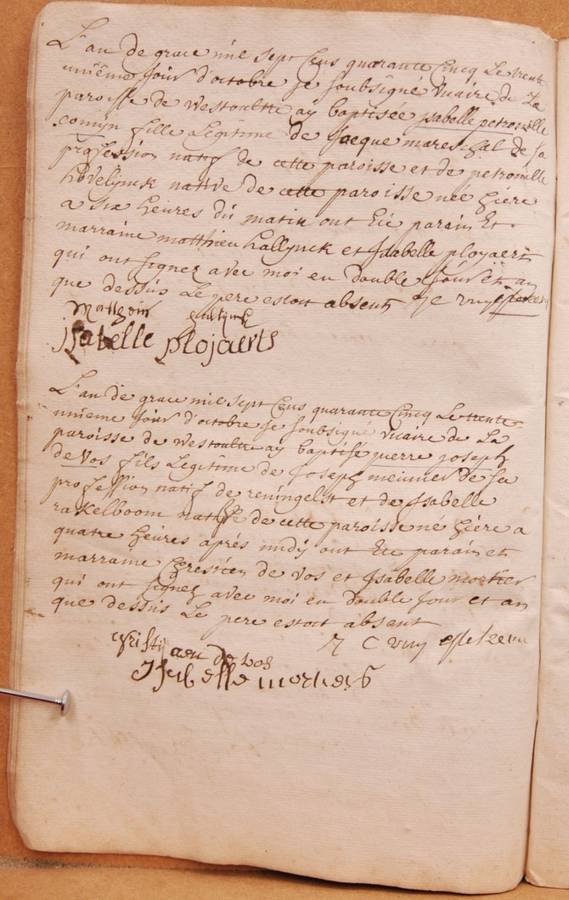 L'an de grace mil sept Cens quarante Cinq Le trente
unième Jour d'octobre Je soubsigné vicaire de La
paroisse de westoultre ay baptisée isabelle petronille
comyn fille Legitime de Jacque mareschal de sa
profession natif de cette paroisse et de petronille
hovelynck native de cette paroisse née hière
a six heures du matin ont été parain et
marraine matthieu hallynck et Isabelle ployaert
qui ont signez avec moi en double Jour et an
que dessus Le pere estoit absent
isabelle plojaerts
L'an de grace mil sept Cens quarante Cinq Le trente
unieme Jour d'octobre Je soubsigné vicaire de La
paroisse de westoultre ay baptisé pierre joseph
de Vos fils Legitime de Joseph meunier de sa
profession natif de reningelst et de Isabelle
rakelboom native de cette paroisse né hière a
quatre heures après midy ont été parain et
marraine Chrestien de vos et Isabelle mortier
qui ont signez avec moi en double Jour et an
que dessus Le pere estoit absent
de vos
Isabelle mortiers